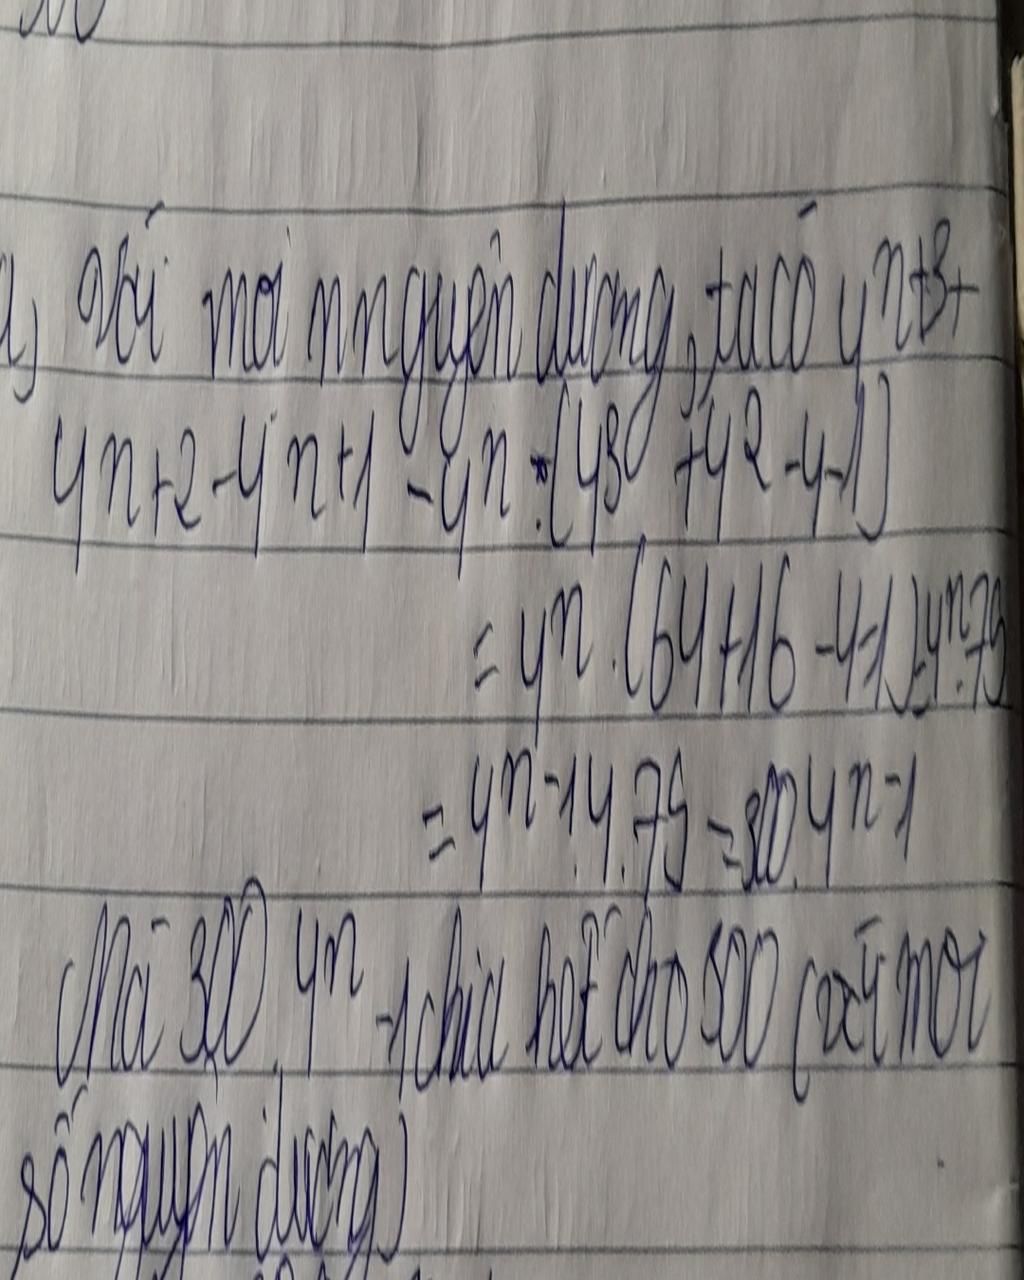 a) Với mọi n nguyên dương, ta có 4n+3+
4n+2-4n+1-4n=(43+42-4-1)
=4n.(64+16-4-1)=4n.75
=4n-1.4.75=300.4n-1
Mà 300.4n-1 chia hết cho 300 (với mọi
số nguyên dương)